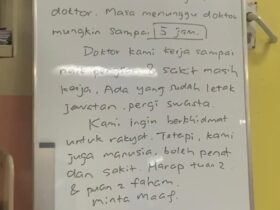 doktor. Masa menunggu doktor
mungkin sampai 5 jam.
Doktor kami kerja sampai
sakit masih
kerja. Ada yang sudah letak
jawatan. pergi swasta.
Kami ingin berkhidmat
untuk rakyat. Tetapi, kami
juga manusia, boleh penat
dan sakit. Harap tuan2
& puan2 faham.
Minta maaf.